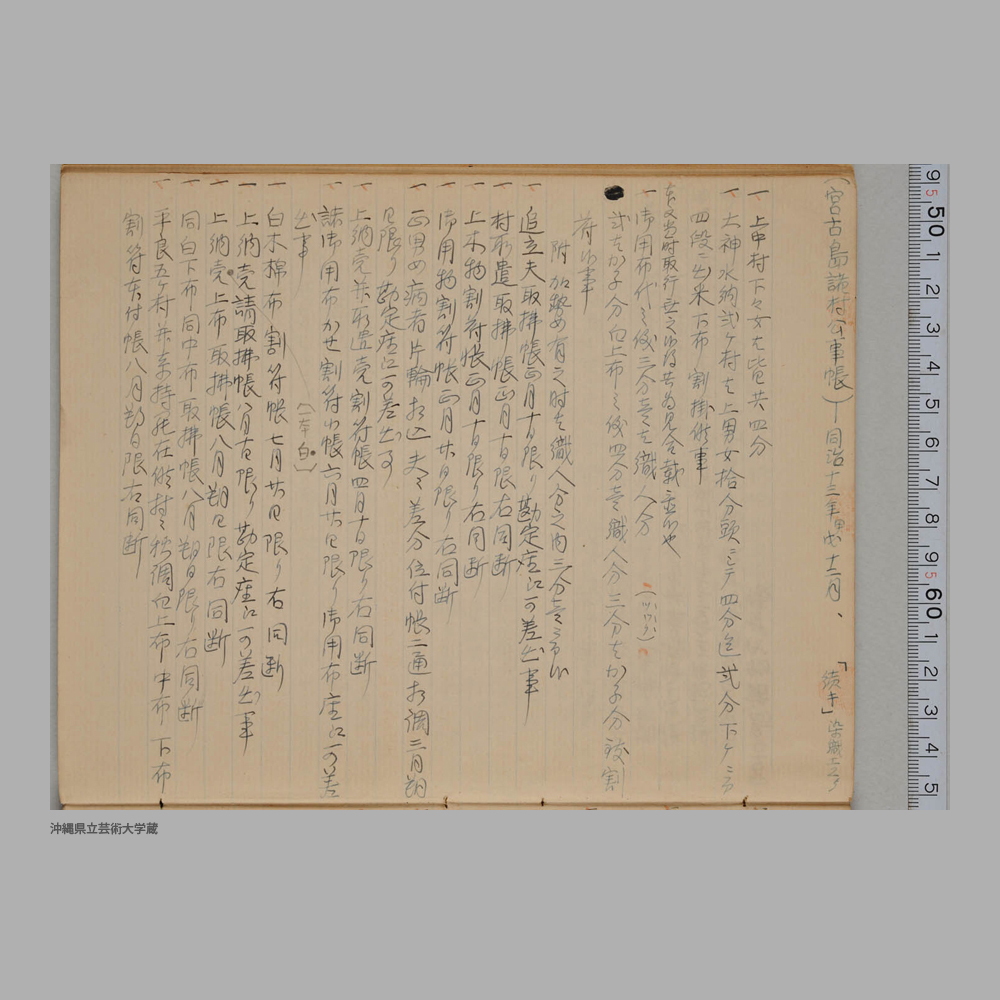 (宮古島諸村公事帳)―同治十三年甲戌十二月、
「績手」染織工
一 上中村下々女ハ皆共四分
一 大神水納弐ヶ村ハ上男女拾分頭ニテ四分迄弐分下ケニ
四段ニ出米下布割掛候事
右文当時取行無之候得共為見合載置候也
一 御用布代之儀三分きハ織人分
弐分かな分白上布之儀四分きハ織人分三分ハかな分致割
符候事
附 加勢有之時ハ織人分之内三分
一 追立夫取払帳正月十日限り勘定座江可差出事
一 村所遣取払帳正月十日限右同断
一 上木物割符帳正月十日限り右同断
一 御用物割符帳正月廿日限り右同断
一 正男女病者片輪相込夫々差分位付帳二通相調二月朔
日限り勘定座江可差出事
一 上納売并所遣売割符帳四月十日限り右同断
一 諸御用布かせ割符帳六月廿日限り御用布座江可差
出事
(一本白)
一 白木棉布割符帳七月廿日限り右同断
一 上納売請取払帳八月十日限り勘定座江可差出事
一 上納売上布取払帳八月朔日限右同断
一 同白下布同中布取払帳八月朔日限り右同断
一 平良五ヶ村并系持死在候村々相調白上布中布下布
割符付帳八月朔日限右同断
9 5 50 1 2 3 4 5 6 7 8 9 5 60 1 2 3 4 5
沖縄県立芸術大学蔵